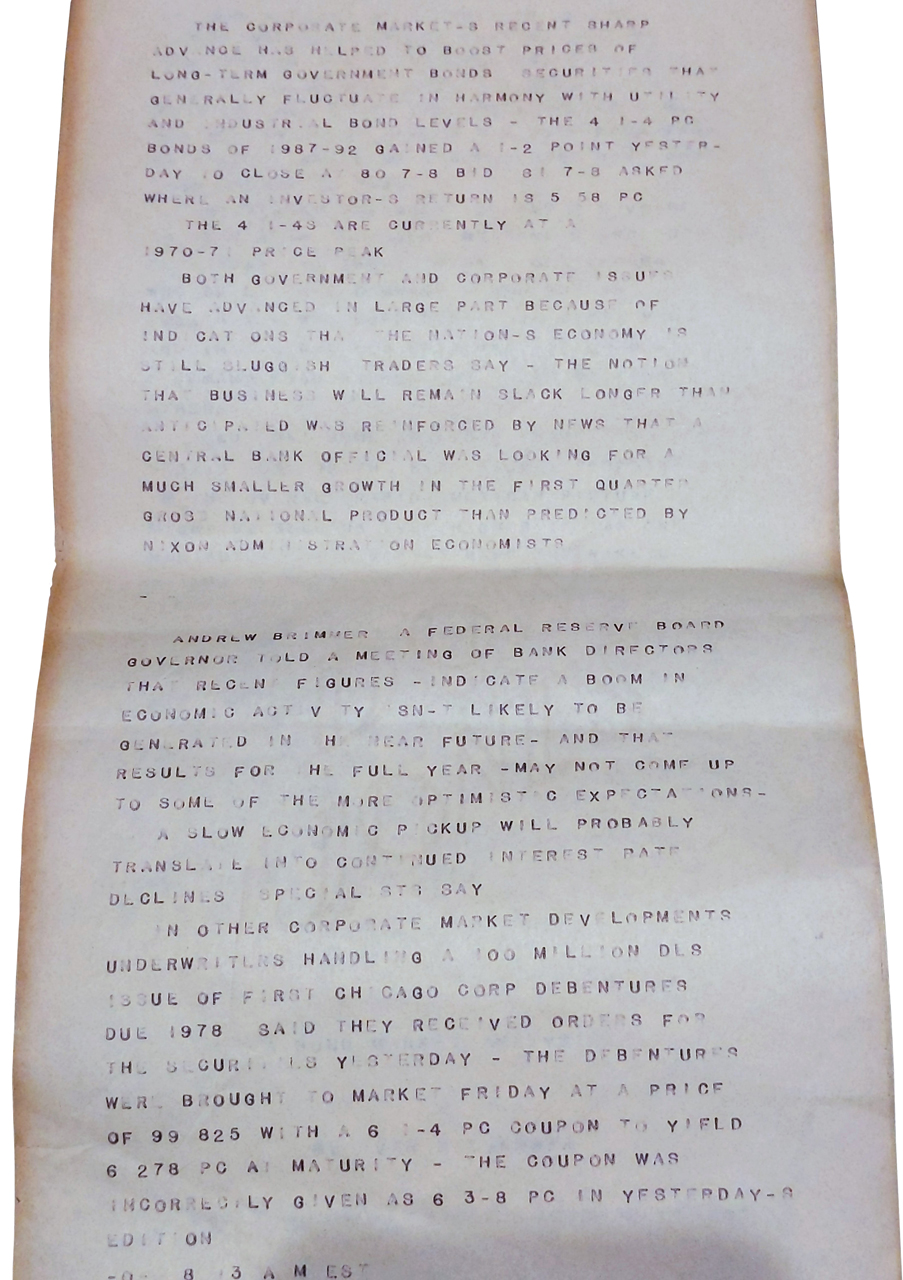 THE CORPORATE MARKET-S RECENT SHARP
ADVANCE HAS HELPED TO BOOST PRICES OF
LONG-TERM GOVERNMENT BONDS SECURITIES THAT
GENERALLY FLUCTUATE IN HARMONY WITH UTILITY
AND INDUSTRIAL BOND LEVELS - THE 4 1-4 PC
BONDS OF 1987-92 GAINED A 1-2 POINT YESTER-
DAY TO CLOSE AT 80 7-8 BID 81 7-8 ASKED
WHERE AN INVESTOR-S RETURN IS 5 58 PC
THE 4 1-4S ARE CURRENTLY AT A
1970-71 PRICE PEAK
BOTH GOVERNMENT AND CORPORATE ISSUES
HAVE ADVANCED IN LARGE PART BECAUSE OF
INDICATIONS THAT THE NATION-S ECONOMY IS
STILL SLUGGISH TRADERS SAY - THE NOTION
THAT BUSINESS WILL REMAIN SLACK LONGER THAN
ANTICIPATED WAS REINFORCED BY NEWS THAT A
CENTRAL BANK OFFICIAL WAS LOOKING FOR A
MUCH SMALLER GROWTH IN THE FIRST QUARTER
GROSS NATIONAL PRODUCT THAN PREDICTED BY
NIXON ADMINISTRATION ECONOMISTS
-
ANDREW BRIMMER A FEDERAL RESERVE BOARD
GOVERNOR TOLD A MEETING OF BANK DIRECTORS
THAT RECENT FIGURES -INDICATE A BOOM IN
ECONOMIC ACTIVITY ISN-T LIKELY TO BE
GENERATED IN THE NEAR FUTURE- AND THAT
RESULTS FOR THE FULL YEAR -MAY NOT COME UP
TO SOME OF THE MORE OPTIMISTIC EXPECTATIONS-
A SLOW ECONOMIC PICKUP WILL PROBABLY
TRANSLATE INTO CONTINUED INTEREST RATE
DECLINES SPECIALISTS SAY
IN OTHER CORPORATE MARKET DEVELOPMENTS
UNDERWRITERS HANDLING A 100 MILLION DLS
ISSUE OF FIRST CHICAGO CORP DEBENTURES
DUE 1978 SAID THEY RECEIVED ORDERS FOR
THE SECURITIES YESTERDAY - THE DEBENTURES
WERE BROUGHT TO MARKET FRIDAY AT A PRICE
OF 99 825 WITH A 6 1-4 PC COUPON TO YIELD
6 278 PC AT MATURITY - THE COUPON WAS
INCORRECTLY GIVEN AS 6 3-8 PC IN YESTERDAY-S
EDITION
8 A M EST